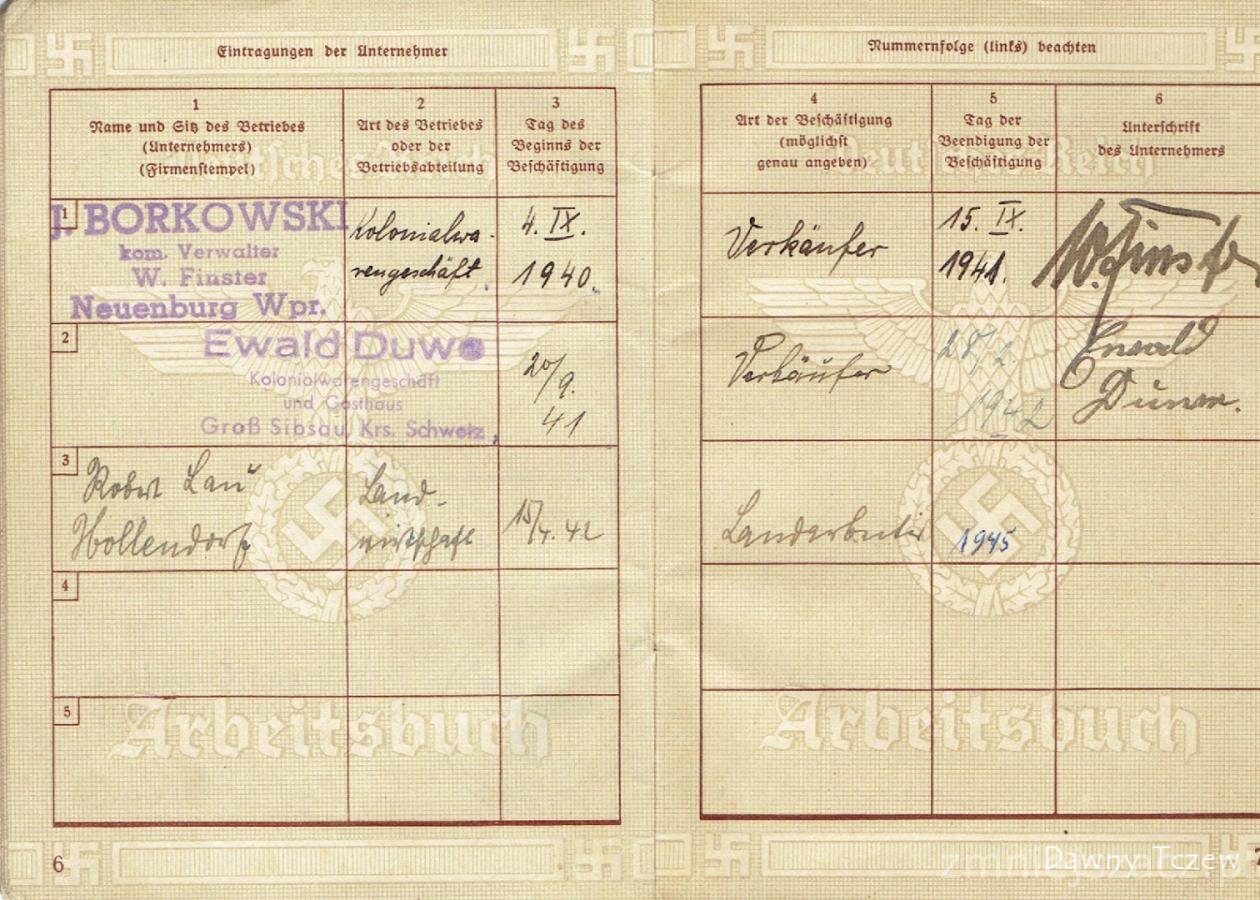 Eintragungen der Unternehmer
1
Name und Sitz des Betriebes
(Unternehmers)
(Firmenstempel)
2
Art des Betriebes
oder der
Betriebsabteilung
3
Tag des
Beginns der
Beschäftigung
1
J. BORKOWSKI
kom. Verwalter
W. Finster
Neuenburg Wpr.
Kolonialwa-
rengeschäft.
4. IX.
1940.
2
Ewald Duwe
Kolonialwarengeschäft
und Gasthaus
Groß Sibsau, Krs. Schwetz
20/9.
41
3
Robert Lau
Hollendorf
Land-
wirtschaft
15/4. 42
4
5
Arbeitsbuch
6
Nummernfolge (links) beachten
4
Art der Beschäftigung
(möglichst
genau angeben)
5
Tag der
Beendigung der
Beschäftigung
6
Unterschrift
des Unternehmers
Deutsches Reich
Verkäufer
15. IX.
1941.
W. Finster
Verkäufer
28/2.
1942
Ewald
Duwe.
Landarbeiter
1945
Arbeitsbuch
Dawny Tczew